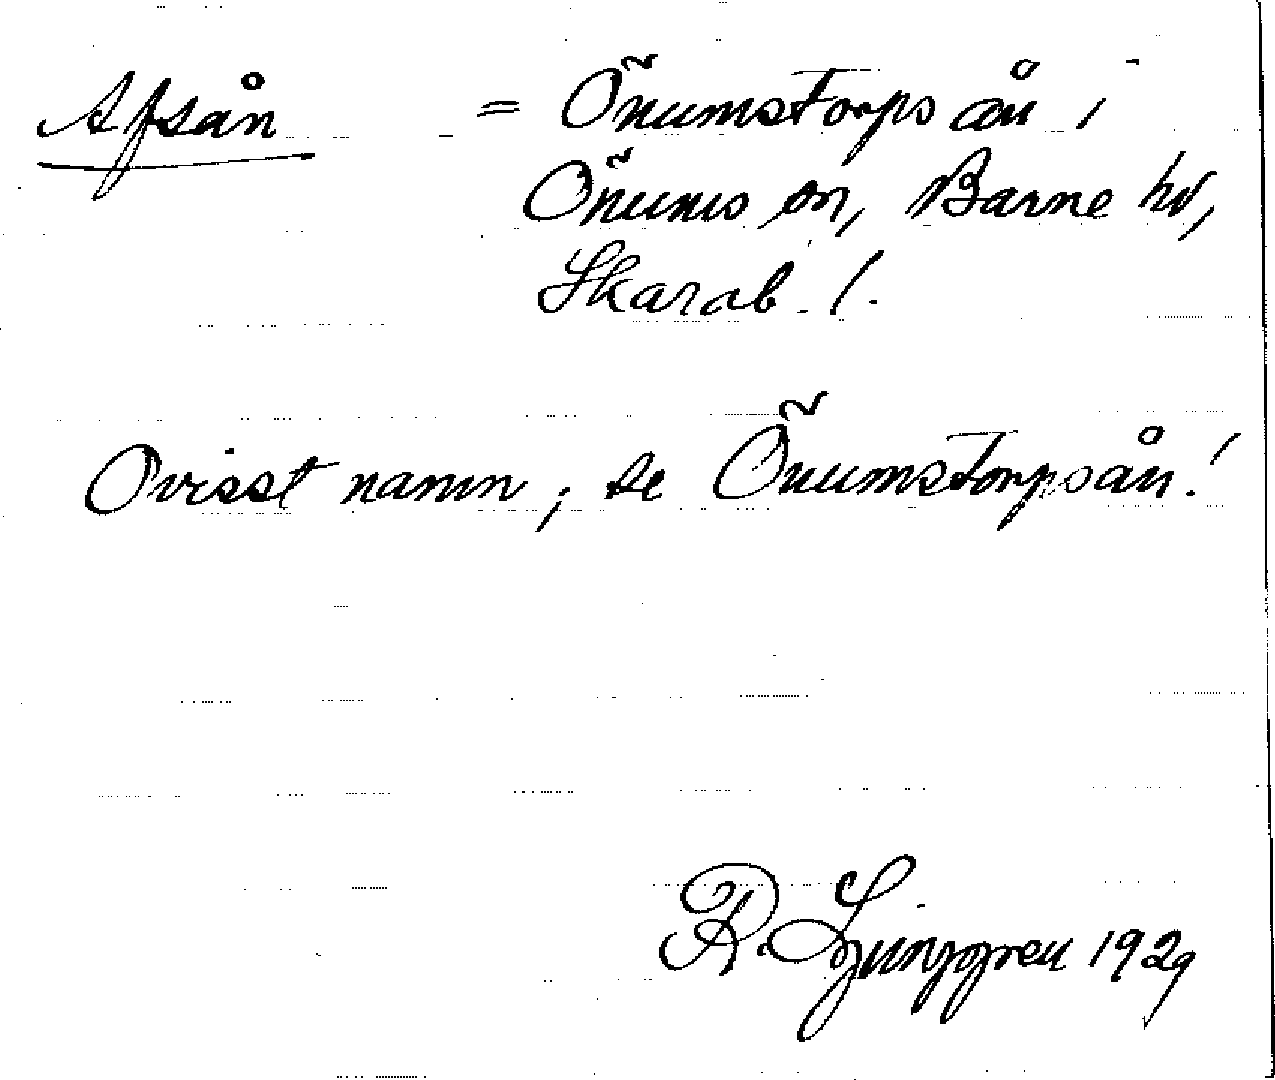 Afsån = Önumstorpsån i
Önums sn, Barne hd,
Skarab. l.
Ovisst namn, se Önumstorpsån!
R. Ljunggren 1929